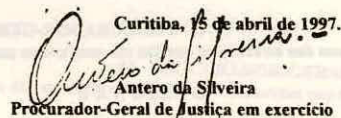 Curitiba, 15 de abril de 1997.
Antero da Silveira.
Antero da Silveira
Procurador-Geral de Justiça em exercício